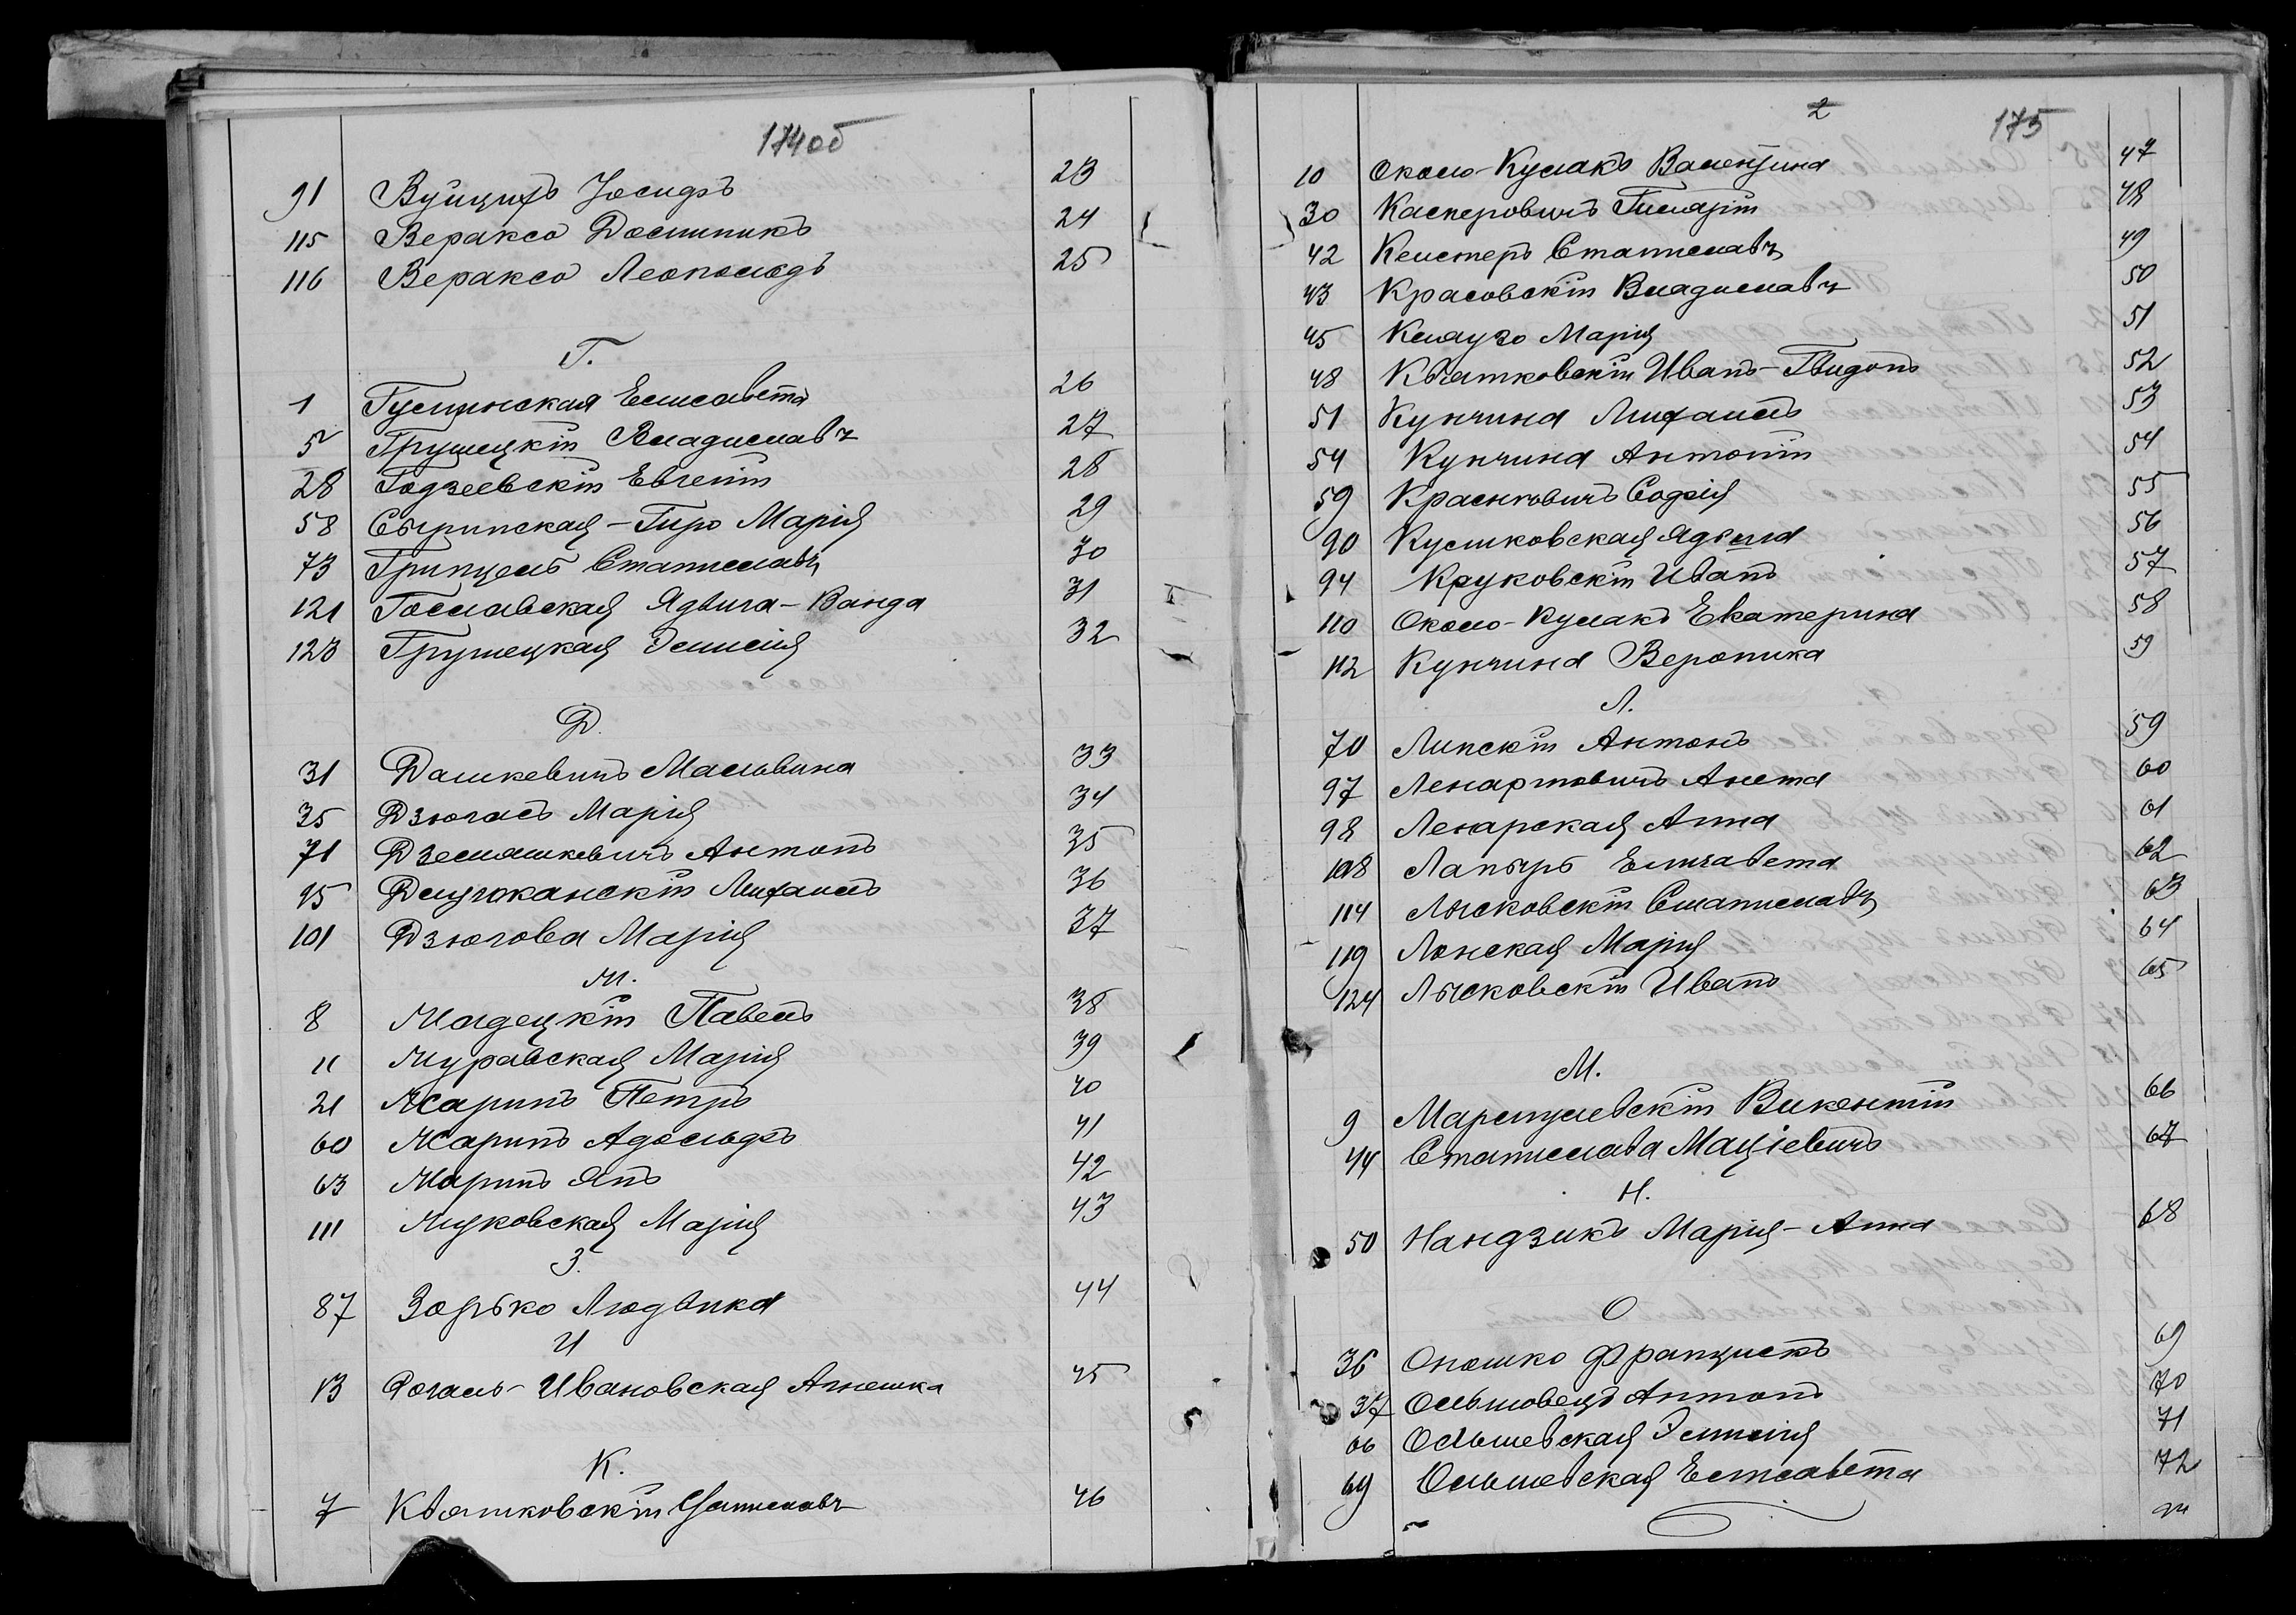 174 об
91 Вуйцихъ Іосифъ 23
115 Веракса Доминикъ 24
116 Веракса Леопольдъ 25
Г.
1 Гусцинская Елисавета 26
5 Грушецкій Владиславъ 27
28 Годзеевскій Евгеній 28
58 Сырипская-Гиро Марія 29
73 Гринцель Станиславъ 30
121 Гославская Ядвига-Ванда 31
123 Грушецкая Эмилія 32
Д.
31 Дашкевичъ Мальвина 33
35 Дзюгасъ Марія 34
71 Дземяшкевичъ Антонъ 35
95 Длугоканскій Михаилъ 36
101 Дзюгова Марія 37
Ж.
8 Жадецкій Павелъ 38
11 Журавская Марія 39
21 Жаринъ Петръ 40
60 Жаринъ Адольфъ 41
63 Жаринъ Янъ 42
111 Жуковская Марія 43
З.
87 Зорько Людвика 44
И
13 Рогаль-Ивановская Агнешка 45
К.
7 Квятковскій Станиславъ 46
2
175
10 Около-Кулакъ Валентина 47
30 Касперовичъ Гиларій 48
42 Кельстеръ Станиславъ 49
43 Красовскій Владиславъ 50
45 Кляузо Марія 51
48 Квятковскій Иванъ-Гвидонъ 52
51 Кунчина Михаилъ 53
54 Кунчина Антоній 54
59 Красньовичъ Софія 55
90 Кулиховская Ядвига 56
94 Круковскій Иванъ 57
110 Около-Кулакъ Екатерина 58
112 Кунчина Вероника 59
Л.
70 Липскій Антонъ 59
97 Ленартовичъ Анета 60
98 Ленарская Анна 61
108 Лапыръ Елизавета 62
114 Лысковскій Станиславъ 63
119 Лонская Марія 64
124 Лысковскій Иванъ 65
М.
9 Марцулевскій Викентій 66
44 Станислава Маціевичъ 67
Н.
50 Нандзикъ Марія-Анна 68
О
36 Оношко Францискъ 69
37 Ольшовецъ Антонъ 70
66 Ольшевская Эмилія 71
69 Ольшевская Елисавета 72